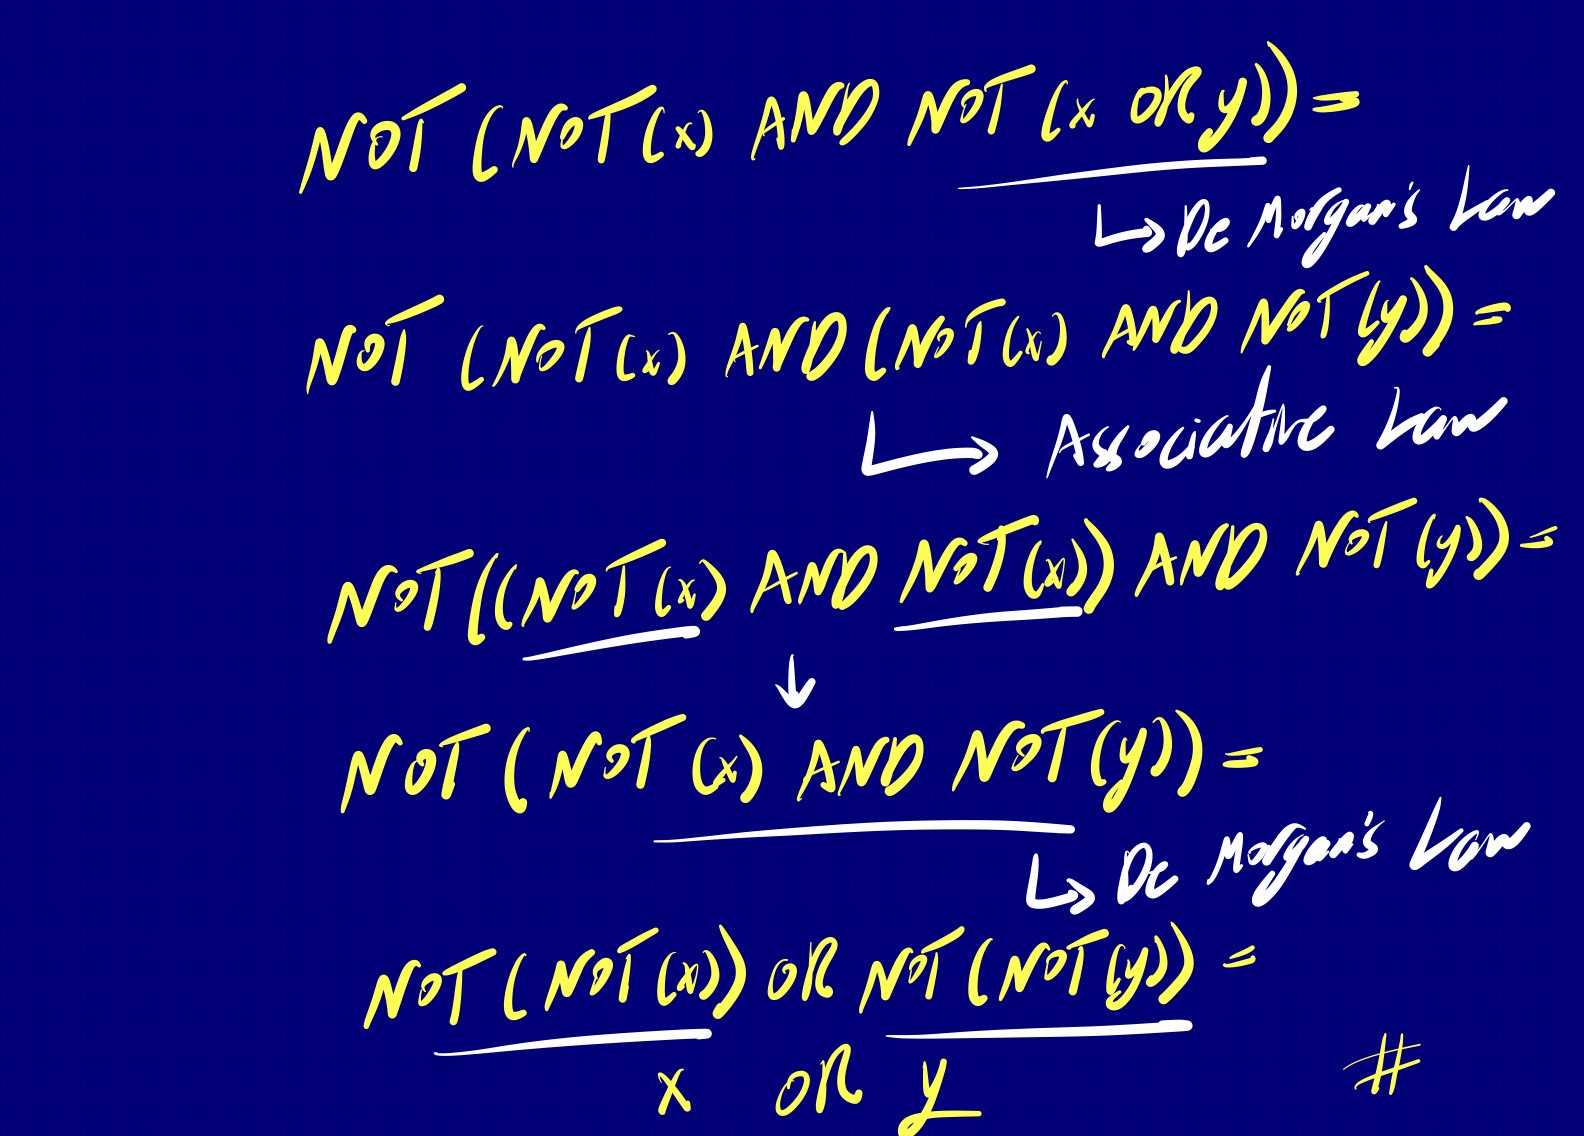 NOT (NOT(x) AND NOT (x OR y)) =
↳ De Morgan's Law
NOT (NOT(x) AND (NOT(x) AND NOT(y)) =
↳ Associative Law
NOT((NOT(x) AND NOT(x)) AND NOT(y)) =
↓
NOT (NOT(x) AND NOT(y)) =
↳ De Morgan's Law
NOT (NOT(x)) OR NOT (NOT(y)) =
x OR y #